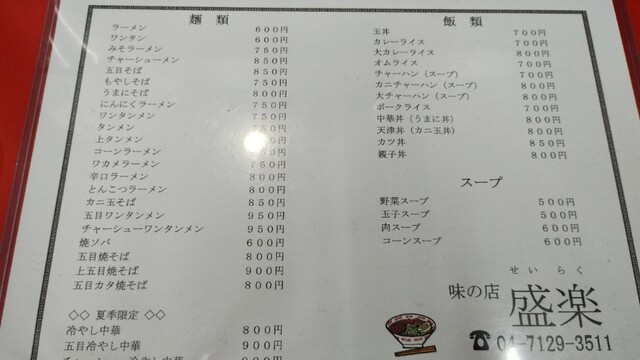 麺類
ラーメン 600円
ワンタン 600円
みそラーメン 750円
チャーシューメン 850円
五目そば 850円
もやしそば 750円
うまにそば 800円
にんにくラーメン 750円
ワンタンメン 750円
タンメン 750円
上タンメン
コーンラーメン
ワカメラーメン 750円
辛口ラーメン 800円
とんこつラーメン 800円
カニ玉そば 850円
五目ワンタンメン 950円
チャーシューワンタンメン 950円
焼ソバ 600円
五目焼そば 800円
上五目焼そば 900円
五目カタ焼そば 800円
◇◇ 夏季限定 ◇◇
冷やし中華 800円
五目冷やし中華 900円
冷やし中華 900円
飯類
玉丼 700円
カレーライス 700円
大カレーライス 800円
オムライス 700円
チャーハン（スープ） 700円
カニチャーハン（スープ） 800円
大チャーハン（スープ） 800円
ポークライス 700円
中華丼（うまに丼） 800円
天津丼（カニ玉丼） 800円
カツ丼 850円
親子丼 800円
スープ
野菜スープ 500円
玉子スープ 500円
肉スープ 600円
コーンスープ 600円
せいらく
味の店 盛楽
☎04-7129-3511